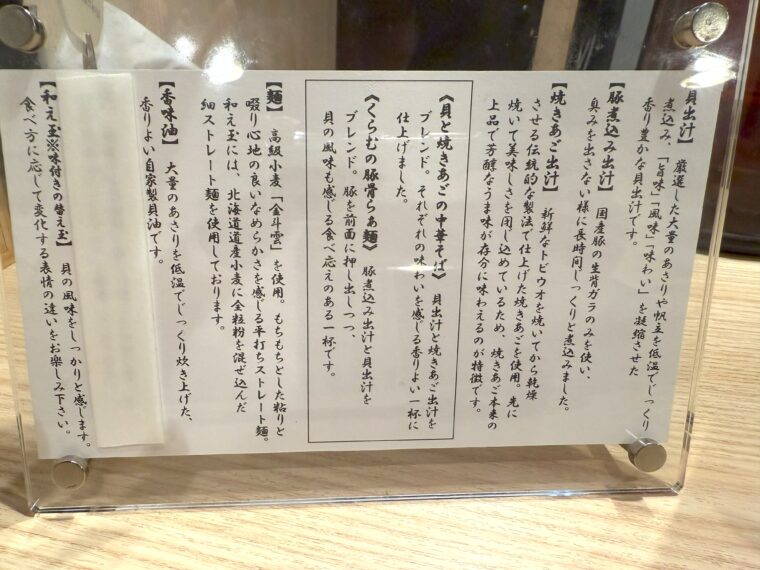 【貝出汁】 厳選した大量のあさりや帆立を低温でじっくり
煮込み、「旨味」「風味」「味わい」を凝縮させた
香り豊かな貝出汁です。
【豚煮込み出汁】 国産豚の生背ガラのみを使い、
臭みを出さない様に長時間じっくりと煮込みました。
【焼きあご出汁】 新鮮なトビウオを焼いてから乾燥
させる伝統的な製法で仕上げた焼きあごを使用。先に
焼いて美味しさを閉じ込めているため、焼きあご本来の
上品で芳醇なうま味が存分に味わえるのが特徴です。
《貝と焼きあごの中華そば》 貝出汁と焼きあご出汁を
ブレンド。それぞれの味わいを感じる香りよい一杯に
仕上げました。
《くらむの豚骨らぁ麺》 豚煮込み出汁と貝出汁を
ブレンド。豚を前面に押し出しつつ、
貝の風味も感じる食べ応えのある一杯です。
【麺】 高級小麦「金斗雲」を使用。もちもちとした粘りと
啜り心地の良いなめらかさを感じる平打ちストレート麺。
和え玉には、北海道道産小麦に全粒粉を混ぜ込んだ
細ストレート麺を使用しております。
【香味油】 大量のあさりを低温でじっくり炊き上げた、
香りよい自家製貝油です。
【和え玉※味付きの替え玉】 貝の風味をしっかりと感じます。
食べ方に応じて変化する表情の違いをお楽しみ下さい。